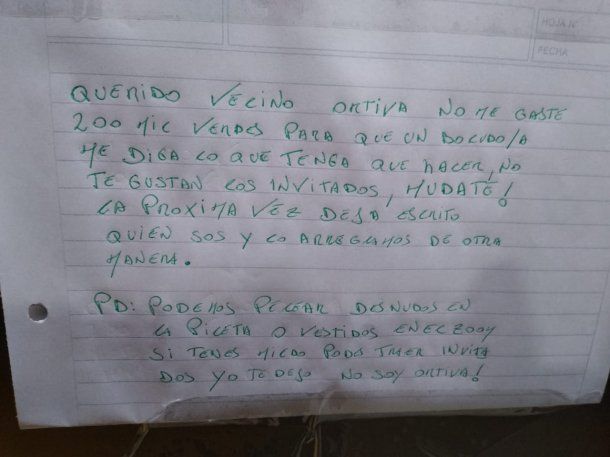 HOJA Nº
FECHA
QUERIDO VECINO ORTIVA NO ME GASTE
200 MIL VERDES PARA QUE UN BOLUDO/A
ME DIGA LO QUE TENGA QUE HACER, NO
TE GUSTAN LOS INVITADOS, MUDATE!
LA PROXIMA VEZ DEJA ESCRITO
QUIEN SOS Y LO ARREGLAMOS DE OTRA
MANERA.
PD: PODEMOS PELEAR DESNUDOS EN
LA PILETA O VESTIDOS EN EL ZOOM
SI TENES MIEDO PODES TRAER INVITA
DOS YO TE DEJO NO SOY ORTIVA!